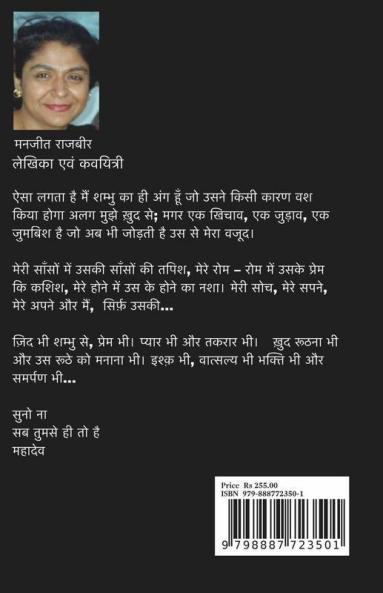 मनजीत राजबीर
लेखिका एवं कवयित्री
ऐसा लगता है मैं शम्भु का ही अंग हूँ जो उसने किसी कारण वश
किया होगा अलग मुझे ख़ुद से; मगर एक खिचाव, एक जुड़ाव, एक
जुमबिश है जो अब भी जोड़ती है उस से मेरा वजूद।
मेरी साँसों में उसकी साँसों की तपिश, मेरे रोम – रोम में उसके प्रेम
कि कशिश, मेरे होने में उस के होने का नशा। मेरी सोच, मेरे सपने,
मेरे अपने और मैं, सिर्फ़ उसकी...
ज़िद भी शम्भु से, प्रेम भी। प्यार भी और तकरार भी। ख़ुद रूठना भी
और उस रूठे को मनाना भी। इश्क़ भी, वात्सल्य भी भक्ति भी और
समर्पण भी...
सुनो ना
सब तुमसे ही तो है
महादेव
Price Rs 255.00
ISBN 979-888772350-1
9 798887 723501